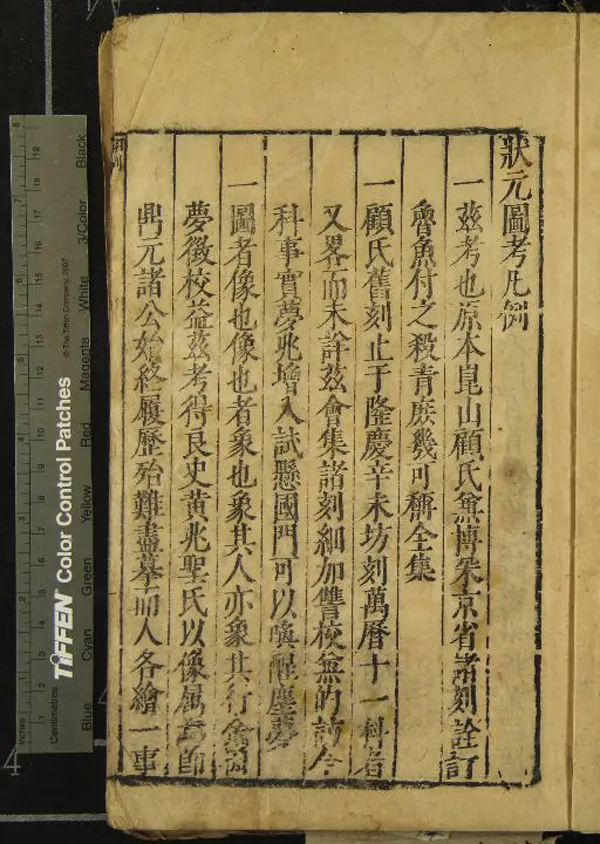 狀元圖考凡例
一茲考也原本崑山顧氏兼博采京省諸刻詮訂
魯魚付之殺青庶幾可稱全集
一顧氏舊刻止于隆慶辛未坊刻萬曆十一科者
又畧而未詳茲會集諸刻細加讐校兼的訪今
科事實夢兆增入試懸國門可以喚醒塵夢
一圖者像也像也者象也象其人亦象其行禽
夢徵校益茲考得良史黃兆聖氏以像屬
鼎元諸公始終履歷殆難盡摹而人各繪一事
TIFFEN Color Control Patches
© The Tiffen Company, 2007
Inches
Centimetres
Blue
Cyan
Green
Yellow
Red
Magenta
White
3/Color
Black